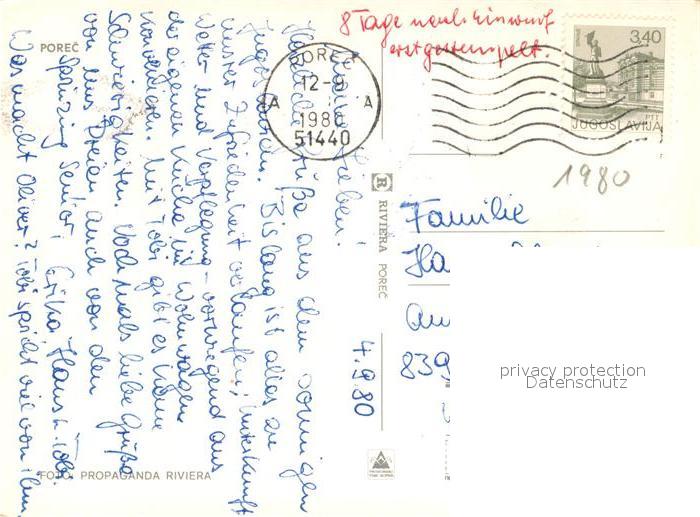 POREČ
8 Tage nach Einwurf
erst gestempelt.
POREČ
12-9
A A
1980
51440
3,40
PTT
JUGOSLAVIJA
1980
Ihr Lieben!
Herzliche Grüße aus dem sonnigen
Jugoslawien. Bislang ist alles zu
unster Zufriedenheit verlaufen; Unterkunft
Wetter und Verpflegung - vorwiegend aus
der eigenen Küche im Wohnwagen
Mit Tobi gibt es keine
Schwierigkeiten. Nochmals liebe Grüße
von uns Dreien, auch von den
Senior, Erika, Hans u. Tobi
Was macht Oliver? Tobi spricht viel von ihm.
4.9.80
FOTO: PROPAGANDA RIVIERA
R RIVIERA POREČ
Familie
Ha
An
839
privacy protection
Datenschutz